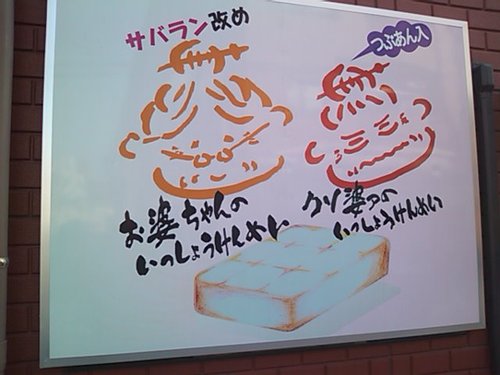 サバラン改め
つぶあん入
お婆ちゃんの
いっしょうけんめい
クソ婆ァの
いっしょうけんめい